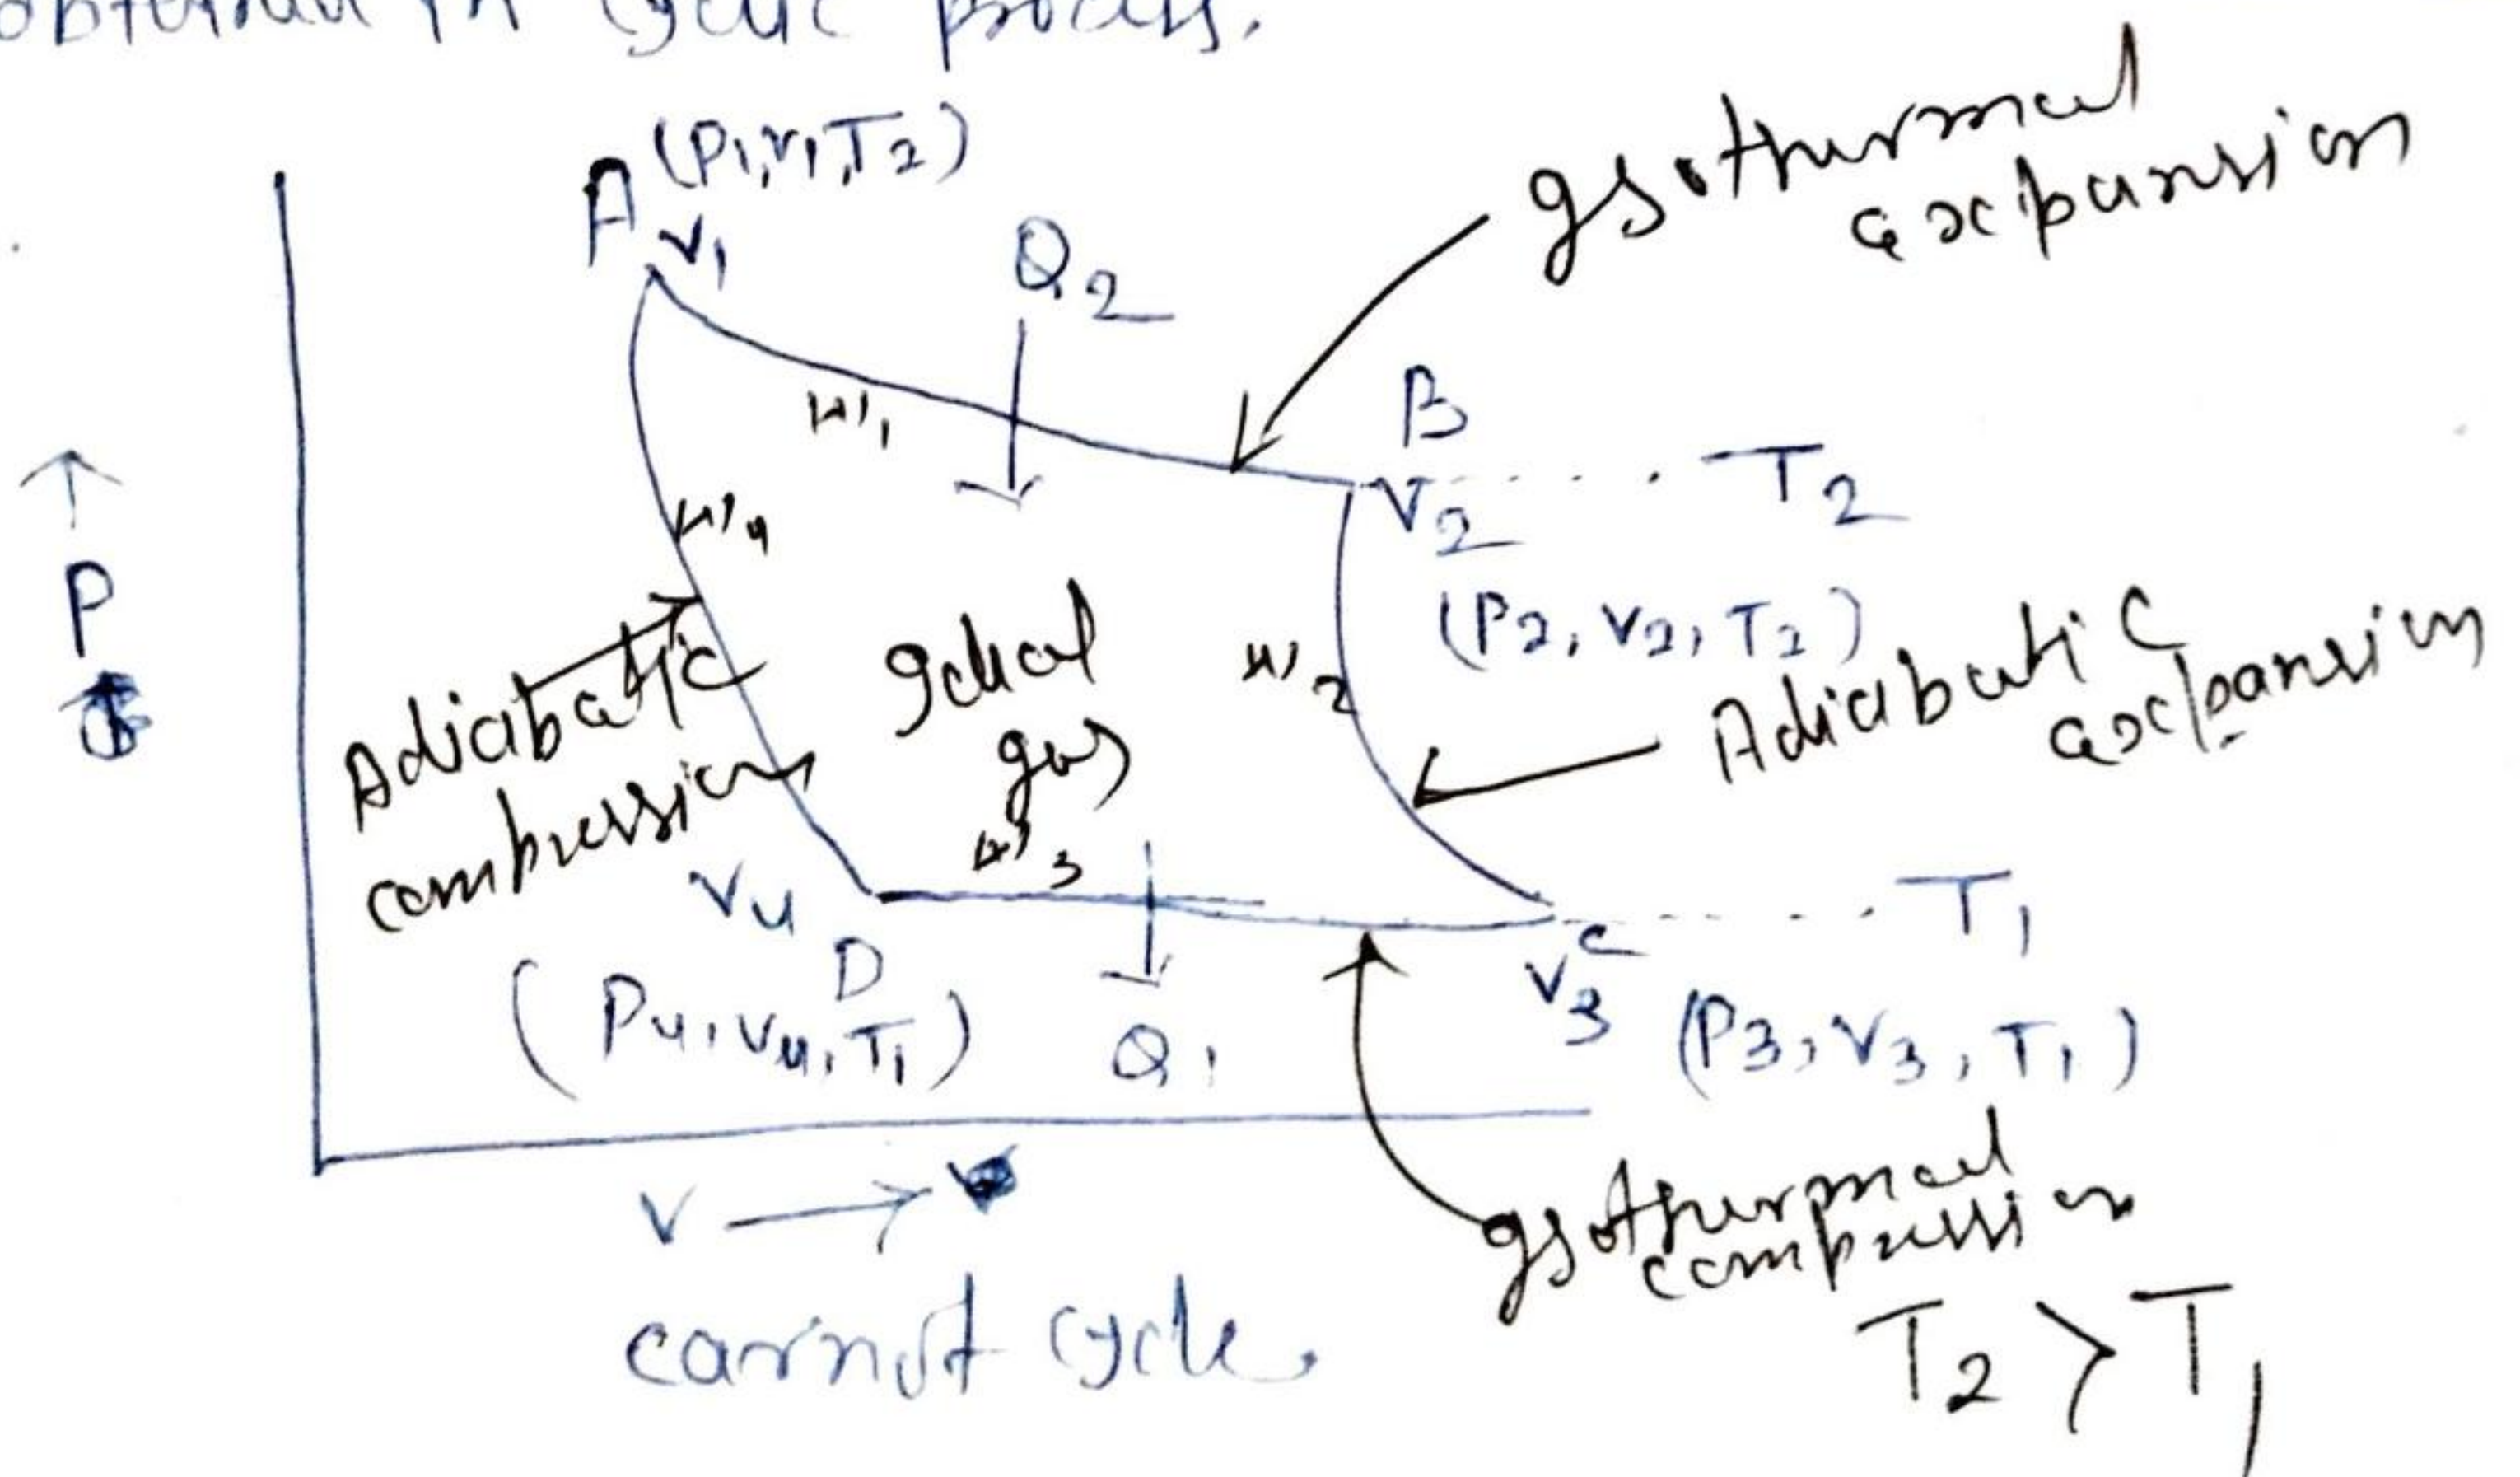 obtained in cyclic process.
A (P1, V1, T2)
V1
Q2
Isothermal
expansion
W1
B
V2 ..... T2
(P2, V2, T2)
P
W4
Adiabatic
compression
Ideal
gas
W2
Adiabatic
expansion
W3
V4
D
(P4, V4, T1)
Q1
C ..... T1
V3
(P3, V3, T1)
V →
Isothermal
compression
carnot cycle.
T2 > T1